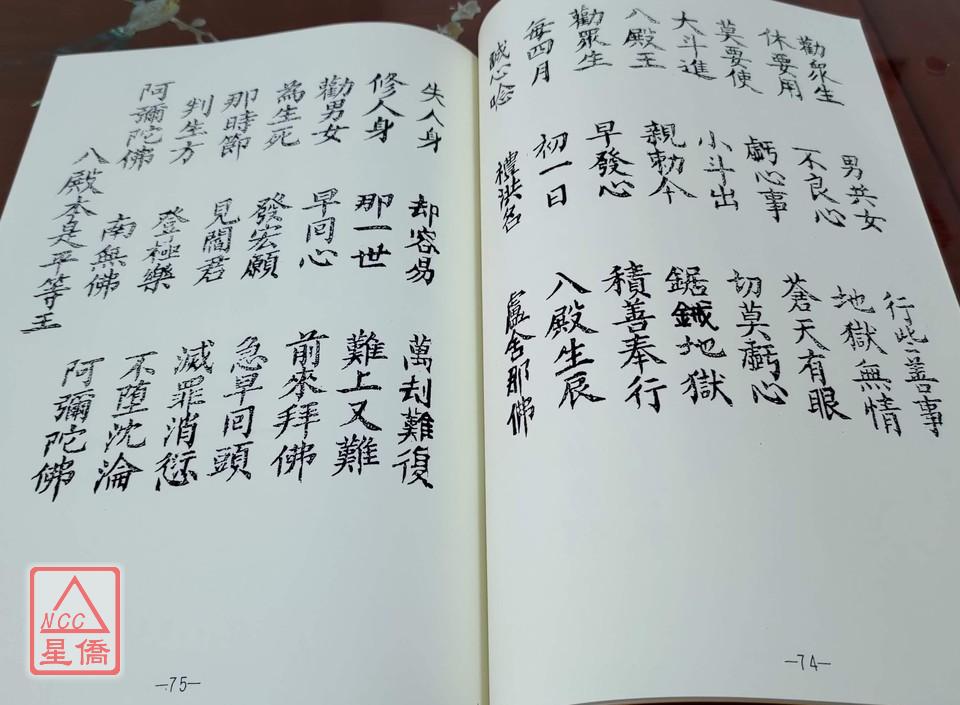 勸衆生 男共女 行些善事
休要用 不良心 地獄無情
莫要使 虧心事 蒼天有眼
大斗進 小斗出 切莫虧心
八殿王 親勅令 鋸鉞地獄
勸眾生 早發心 積善奉行
每四月 初一日 八殿生辰
誠心唸 禮洪名 盧舍那佛
—74—
失人身 却容易 萬刦難復
修人身 那一世 難上又難
勸男女 早回心 前來拜佛
為生死 發宏願 急早回頭
那時節 見閻君 滅罪消愆
判生方 登極樂 不墮沈淪
阿彌陀佛 南無佛 阿彌陀佛
八殿本是平等王
—75—
NCC
星僑